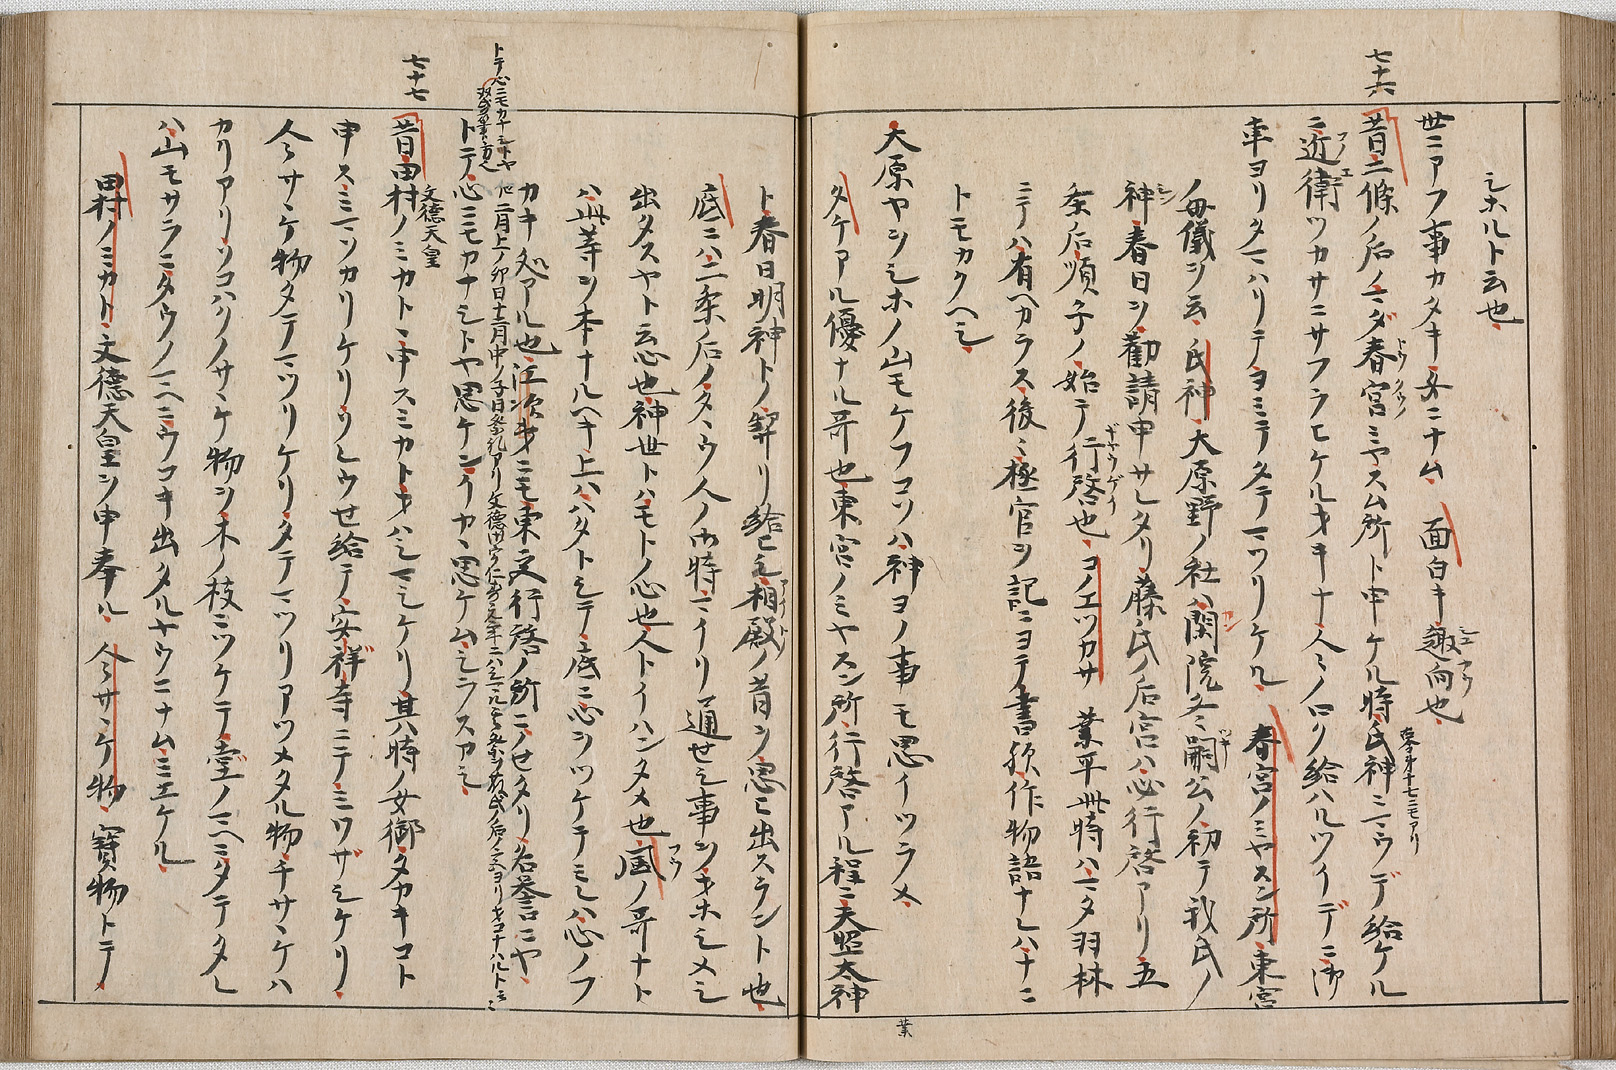 シホルト云也
世ニアフ事カタキ女ニナム 面白キ趣向也
七十六
昔二條ノ后ノマダ春宮ミヤスム所ト申ケル時氏神ニマウデ給ケル
ニ近衛ツカサニサフラヒケルオキナ人々ノロク給ハルツイデニ御
車ヨリタマハリテヨミテタテマツリケル 春宮ノミヤスン所 東宮
ノ母儀ヲ云 氏神 大原野ノ社ハ閑院冬嗣公ノ初テ我氏ノ
神春日ヲ勧請申サレタリ藤氏ノ后宮ハ必行啓アリ五
条后順子ノ始テ行啓也 コノエツカサ 業平此時ハマタ羽林
ニテハ有ヘカラス後ニ極官ヲ記ニヨテ書歟作物語ナレハナニ
トモカクヘシ
大原ヤヲシホノ山モケフコソハ神ヨノ事モ思イツラメ
タケアル優ナル哥也東宮ノミヤスン所行啓アル程ニ天照太神
業
ト春日明神トノ契リ給ヒシ相殿ノ昔ヲ思ヒ出スラント也
底ニハ二条后ノタヽウ人ノ御時マイリ通セシ事ヲオホシメシ
出タスヤト云心也神世トハモトノ心也人トイハンタメ也 風ノ哥ナト
ハ此等ヲ本ナルヘキ上ハハタトシテ底ニ心ヲツケテミレハ心ノフ
カキ処アル也江次才ニモ東交行啓ノ所ニノせタリ名誉ニヤ
トテ心ニモカナシトヤ思ケンイカヽ思ケムシラスカシ
七十七
昔田村ノミカトヽ申スミカトオハシマシケリ其時ノ女御タカキコト
文徳天皇
申スミマソカリケリウセ給テ安祥寺ニテミワザシケリ
人々サヽケ物タテマツリケリタテマツリアツメタル物チサヽケハ
カリアリソコハクノサヽケ物ヲ木ノ枝ニツケテ堂ノマヘニタテタレ
ハ山モサラニタウノマヘニウコキ出タルヤウニナムミエケル
田村ノミカト 文徳天皇ヲ申奉ル 人々サヽケ物 寳物トテ